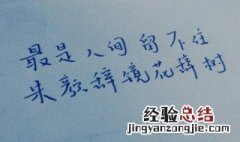 最是人间留不住
朱颜辞镜花辞树
经验总结
jingyanzongjie.com